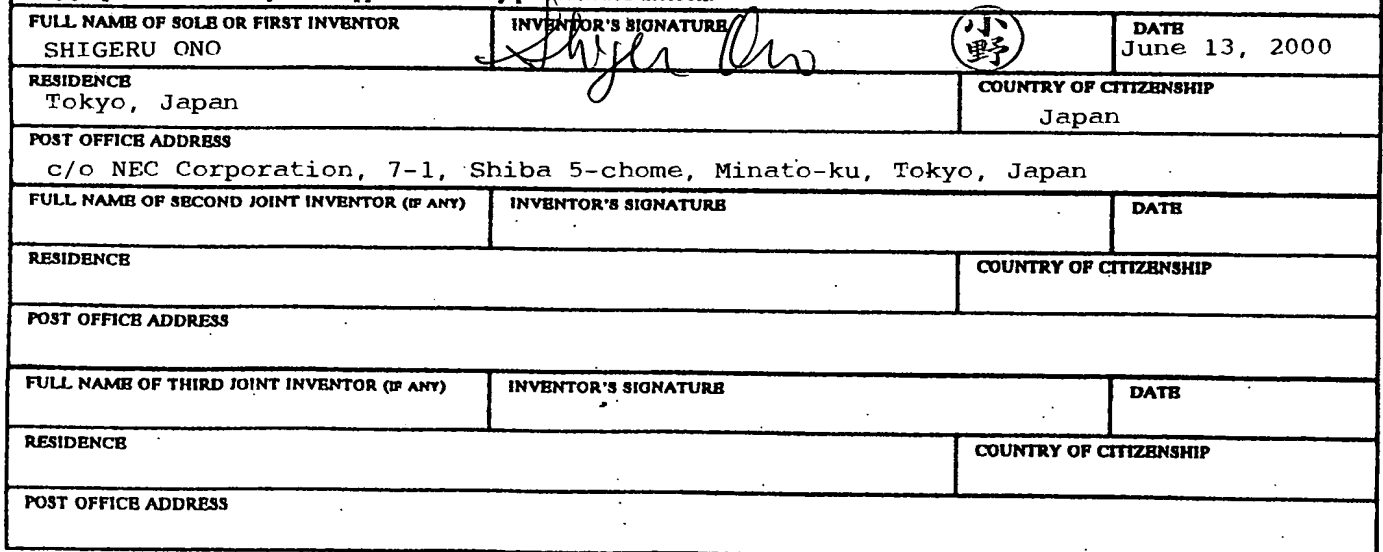 FULL NAME OF SOLE OR FIRST INVENTOR INVENTOR'S SIGNATURE DATE
SHIGERU ONO Shigeru Ono 小野 June 13, 2000
RESIDENCE COUNTRY OF CITIZENSHIP
Tokyo, Japan Japan
POST OFFICE ADDRESS
c/o NEC Corporation, 7-1, Shiba 5-chome, Minato-ku, Tokyo, Japan
FULL NAME OF SECOND JOINT INVENTOR (IF ANY) INVENTOR'S SIGNATURE DATE
RESIDENCE COUNTRY OF CITIZENSHIP
POST OFFICE ADDRESS
FULL NAME OF THIRD JOINT INVENTOR (IF ANY) INVENTOR'S SIGNATURE DATE
RESIDENCE COUNTRY OF CITIZENSHIP
POST OFFICE ADDRESS